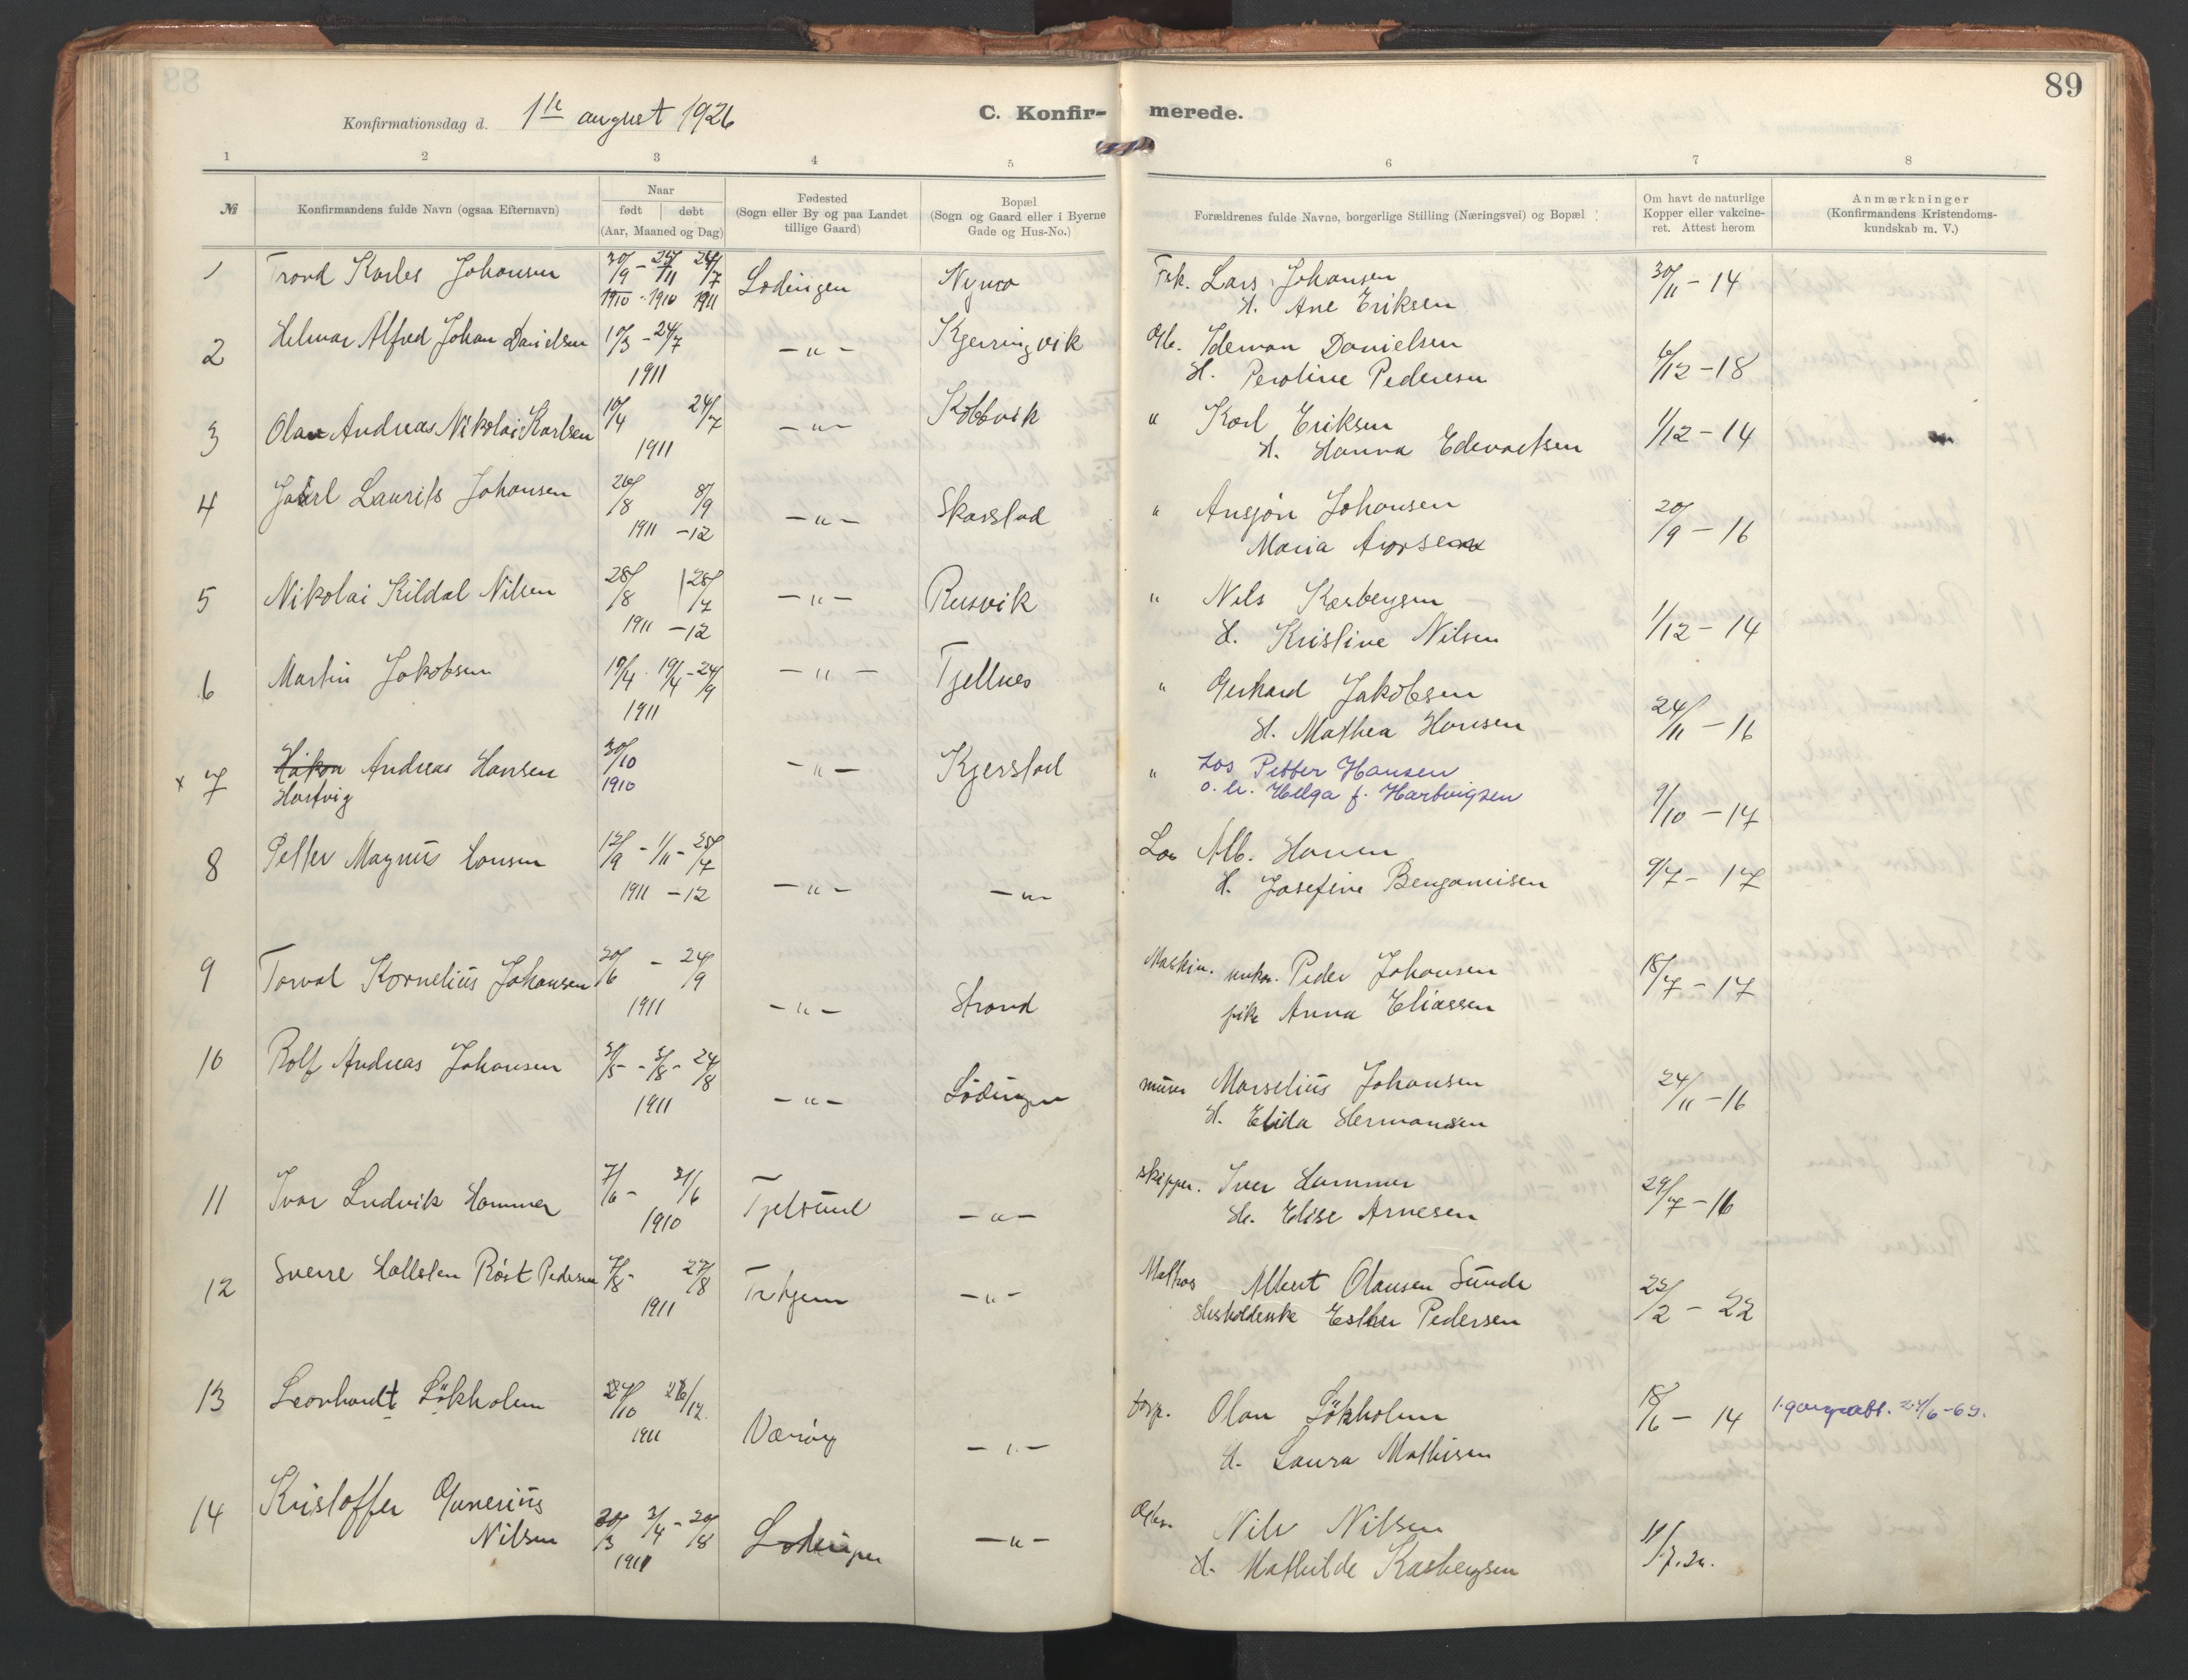 89
Konfirmationsdag d. 1ste august 1926
C. Konfir- merede.
1 2 3 4 5 6 7 8
№ Konfirmandens fulde Navn (ogsaa Efternavn)
Naar
født | døbt
(Aar, Maaned og Dag)
Fødested
(Sogn eller By og paa Landet
tillige Gaard)
Bopæl
(Sogn og Gaard eller i Byerne
Gade og Hus-No.)
Forældrenes fulde Navne, borgerlige Stilling (Næringsvei) og Bopæl
Om havt de naturlige
Kopper eller vakcine-
ret. Attest herom
Anmærkninger
(Konfirmandens Kristendoms-
kundskab m. V.)
1 Trond Karles Johansen 30/9 - 25/11 24/7 Lødingen Nymo Fisk. Lars Johansen 30/11 - 14
1910 - 1910 1911 H. Ane Eriksen
2 Helmar Alfred Johan Danielsen 10/3 - 24/7 - " - Kjerringvik Gb. Ideman Danielsen 6/12 - 18
1911 H. Peroline Pedersen
3 Olav Andreas Nikolai Karlsen 10/4 24/7 - " - Kobbvik " Karl Eriksen 1/12 - 14
1911 H. Hanna Edevartsen
4 Laurits Johansen 26/8 8/9 - " - Skarstad " Ansjøn Johansen 20/9 - 16
1911 - 12 Maria
5 Nikolai Kildal Nilsen 28/8 28/7 - " - Rusvik " Nils Karbergsen 1/12 - 14
1911 - 12 H. Kristine Nilsen
6 Martin Jakobsen 10/4 19/4 - 24/9 - " - Fjellnes " Gerhard Jakobsen 24/11 - 16
1911 H. Mathea Hansen
x 7 Håkon Andreas Hansen 30/10 - " - Kjerstad " Los Petter Hansen
Hartvig 1910 o. h. Helga f. Hartvigsen 9/10 - 17
8 Petter Magnus Hansen 12/9 - 1/11 - 28/7 Los Alb. Hansen 9/7 - 17
1911 - 12 - " - - " - H. Josefine Bengamisen
9 Torval Kornelius Johansen 20/6 - 24/9 Maskin. unka. Peder Johansen 18/7 - 17
1911 - " - Strand pike Anna Eliassen
10 Rolf Andreas Johansen 3/5 - 3/8 - 24/8 murer Marselius Johansen 24/11 - 16
1911 - " - Lødingen H. Elida Hermansen
11 Ivar Ludvik Hammer 7/6 - 21/6 Tjelsund - " - skipper. Iver Hammer 29/7 - 16
1910 H. Elise Arnesen
12 Sverre Hallsten Røst Pedersen 7/8 - 27/8 Trhjem - " - Matros Albert Olausen Sunde 22/2 - 22
1911 Husholderske Esther Pedersen
13 Leonhardt Løkholm 24/10 26/12 Værøy - " - Olau Løkholm 18/6 - 14 1. gangs att. 24/6-69.
1911 H. Laura Mathisen
14 Kristoffer Gunerius
Nilsen 20/3 2/4 - 20/8 Lødingen - " - Nils Nilsen 11/7.24.
1911 H. Mathilde Karbergsen